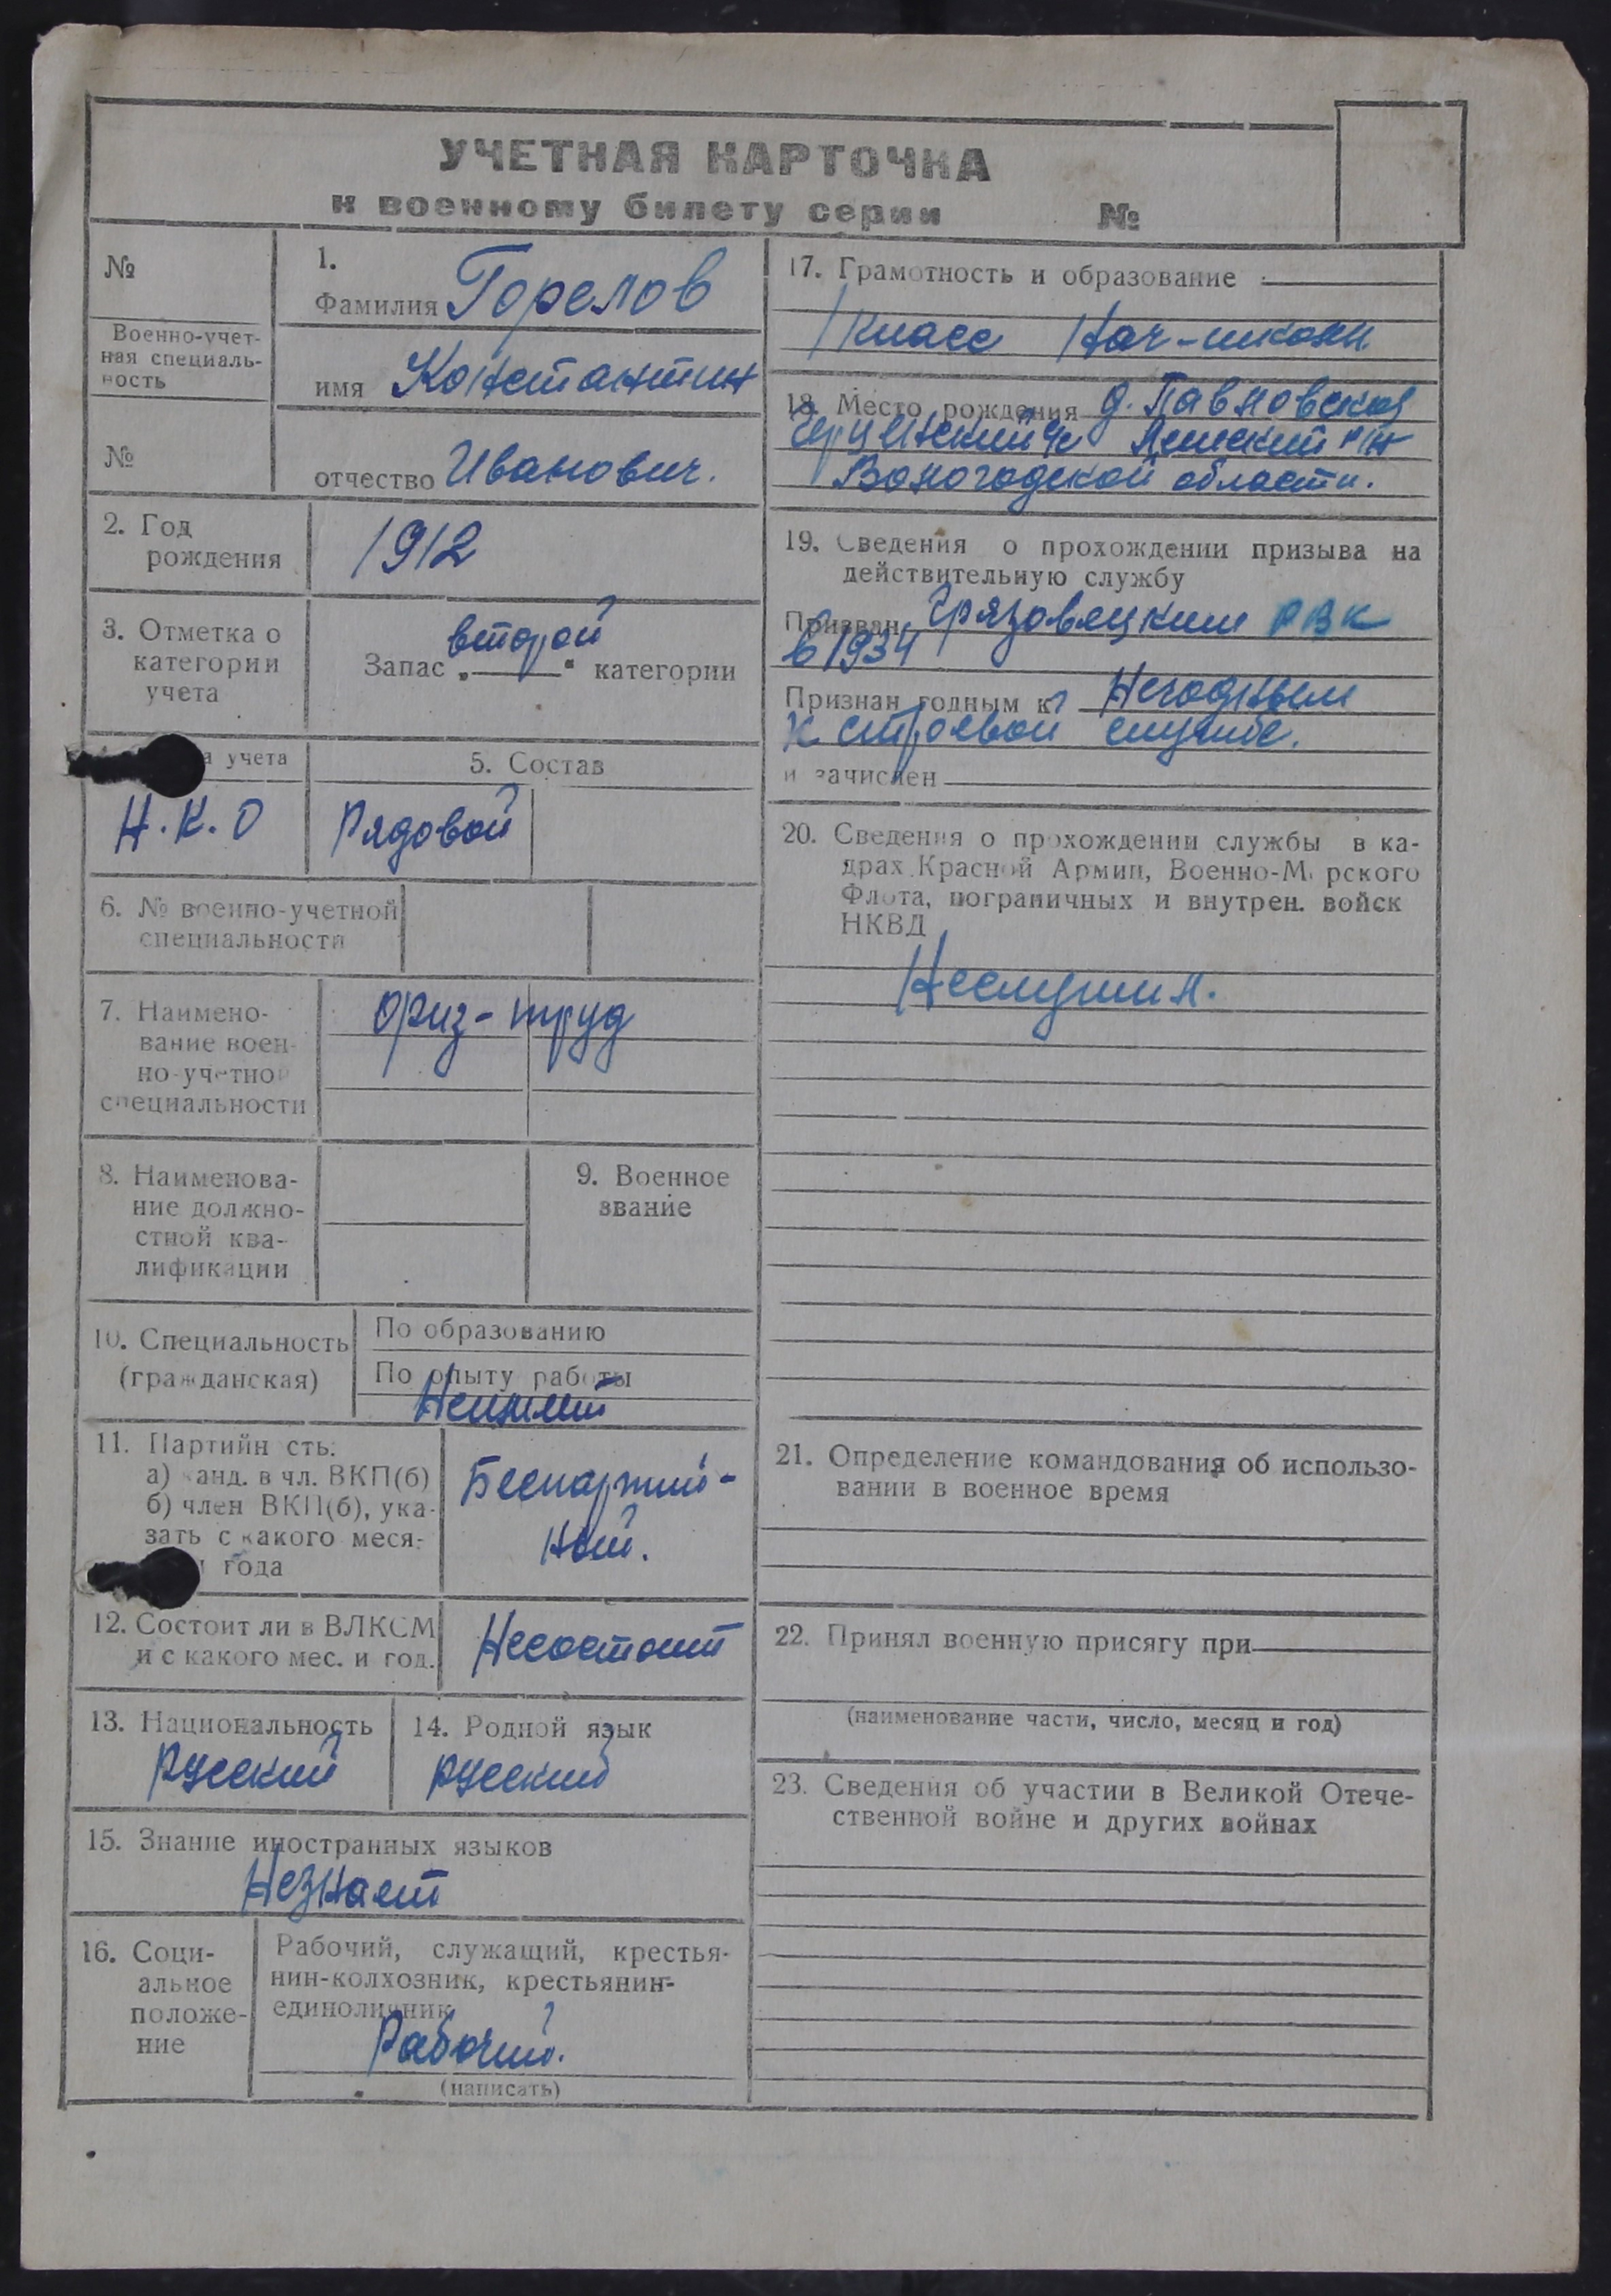 УЧЕТНАЯ КАРТОЧКА
к военному билету серии №
№
Военно-учет-
ная специаль-
ность
№
1.
Фамилия Горелов
имя Константин
отчество Иванович.
2. Год
рождения
1912
3. Отметка о
категории
учета
Запас „второй“ категории
учета
Н.К.О
5. Состав
Рядовой
6. № военно-учетной
специальности
7. Наимено-
вание воен-
но-учетно
специальности
физ-труд
8. Наименова-
ние должно-
стной ква-
лификации
9. Военное
звание
10. Специальность
(гражданская)
По образованию
По опыту работы
Неимеет
11. Партийн сть:
а) канд. в чл. ВКП(б)
б) член ВКП(б), ука-
зать с какого меся-
года
Беспартий-
ный.
12. Состоит ли в ВЛКСМ
и с какого мес. и год.
Несостоит
13. Национальность
Русский
14. Родной язык
русский
15. Знание иностранных языков
Незнает
16. Соци-
альное
положе-
ние
Рабочий, служащий, крестья-
нин-колхозник, крестьянин-
единоличник
Рабочий.
(написать)
17. Грамотность и образование
1 класс Нач-школы
18. Место рождения д. Павловская
с/с р/н
Вологодской области.
19. Сведения о прохождении призыва на
действительную службу
Призван Грязовецким РВК
в 1934
Признан годным к Негодным
к строевой службе.
и зачислен
20. Сведения о прохождении службы в ка-
драх Красной Армии, Военно-М рского
Флота, пограничных и внутрен. войск
НКВД
Неслужил.
21. Определение командования об использо-
вании в военное время
22. Принял военную присягу при
(наименование части, число, месяц и год)
23. Сведения об участии в Великой Отече-
ственной войне и других войнах